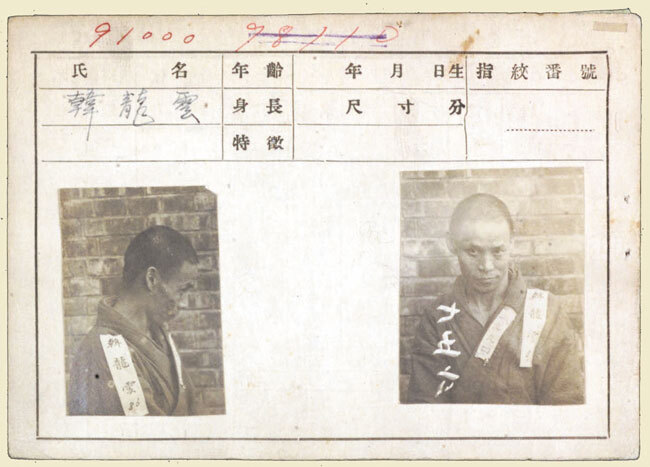 91000 98110
氏名 年齡 年月日生 指紋番號
韓龍雲 身長 尺寸分
特徵
韓龍雲 86
龍雲